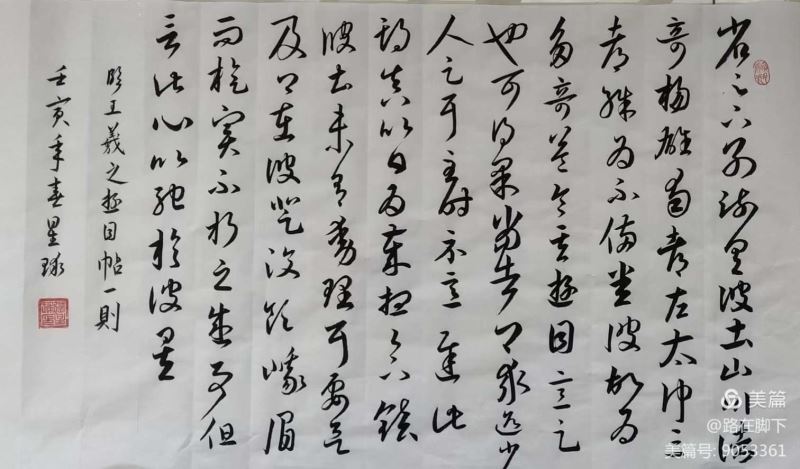 省足下別疏具彼土山川諸
奇揚雄蜀都左太冲三
都殊為不備悉彼故為
多奇益令其遊目意足
也可得果當告卿求迎少
人足耳至時示意遲此
期真以日為歲想足下鎮
彼土未有動理耳要欲
及卿在彼登汶領峨眉
而旋實不朽之盛事但
言此心以馳於彼矣
臨王羲之遊目帖一則
壬寅年春星球
美篇
@路在脚下
美篇号: 9053361